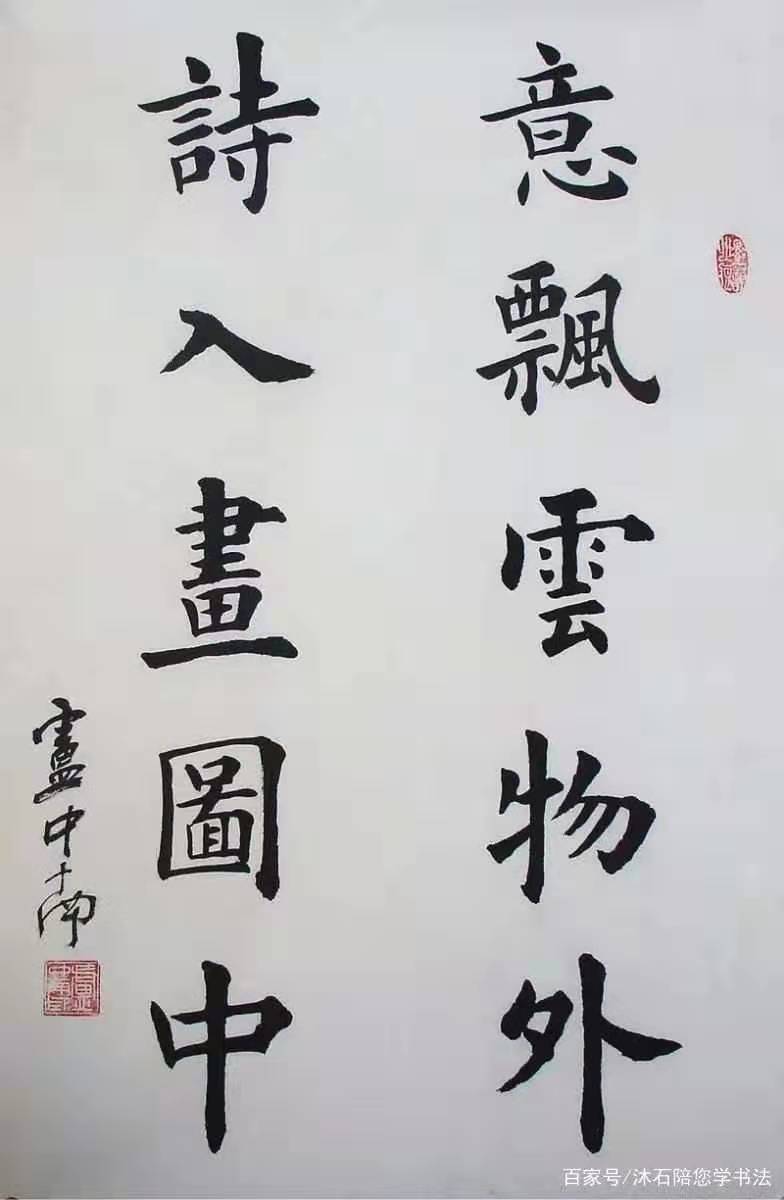 意飄雲物外
詩入畫圖中
盧中南
百家号/沐石陪您学书法